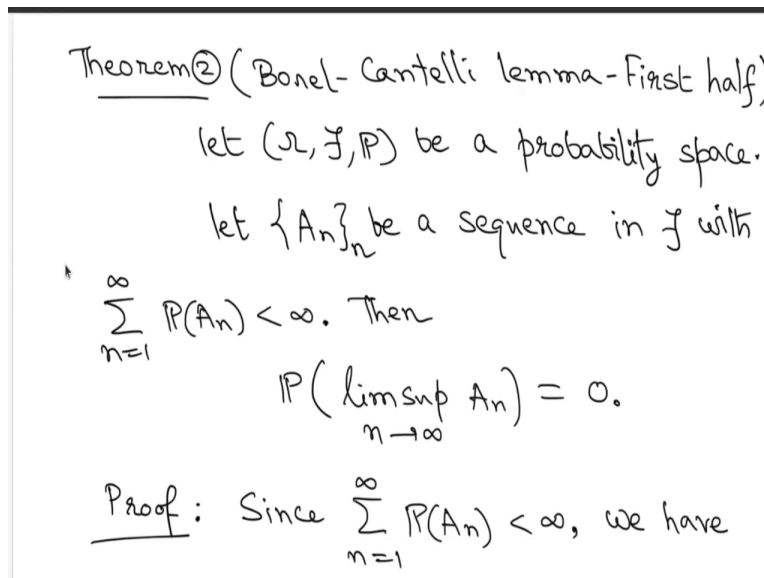 Theorem② (Borel-Cantelli lemma-First half)
let (Ω, ℱ, ℙ) be a probability space.
let {Aₙ}ₙ be a sequence in ℱ with
∞
∑ ℙ(Aₙ) < ∞. Then
n=1
ℙ( limsup Aₙ) = 0.
n→∞
Proof : Since ∑ ℙ(Aₙ) < ∞, we have
∞
n=1